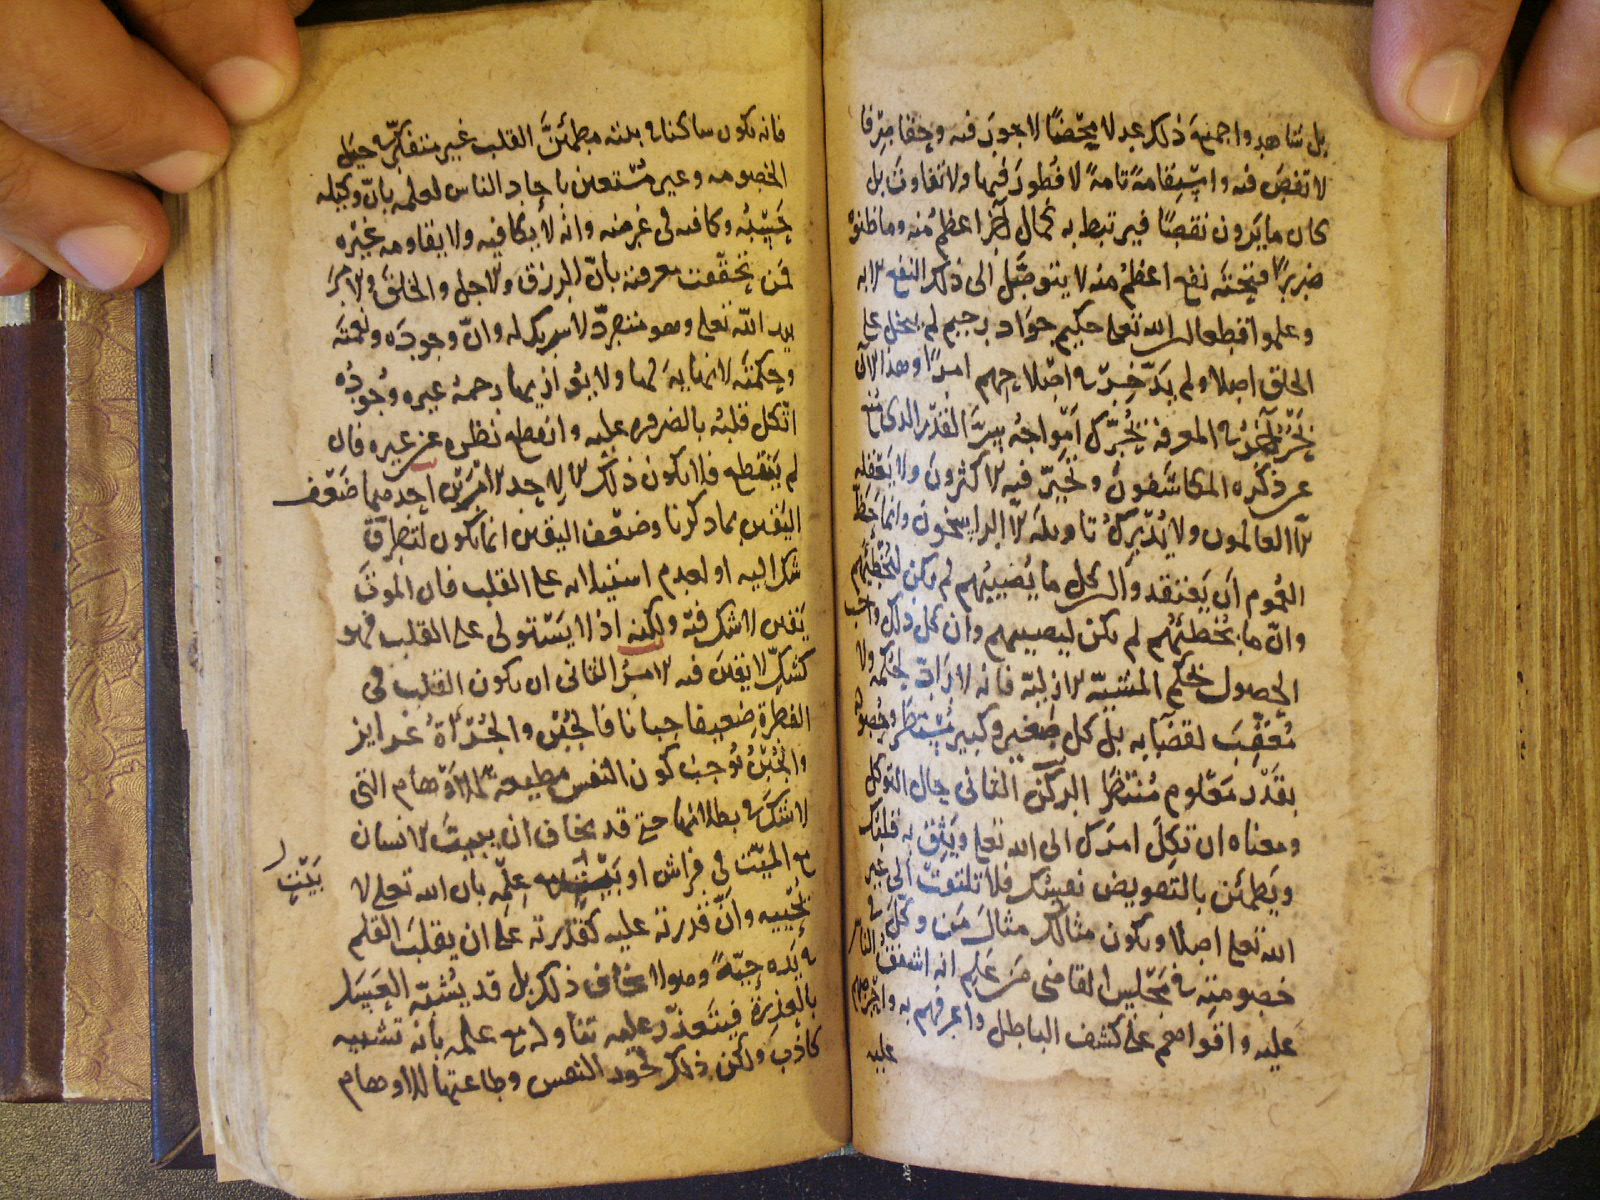 بل شاهدوا جميع ذلك عدلا محضا لا جور فيه وحقا صرفا
لا نقص فيه واستقامة تامة لا فطور فيها ولا تفاوت بل
كل ما يرون نقصا فيرتبط به كمال آخر اعظم منه وما ظنوه
ضررا فتحته نفع اعظم منه لا يتوصل الى ذلك النفع الا به
وعلموا قطعا ان الله تعلى حكيم جواد رحيم لم يبخل على
الخلق اصلا ولم يدخر في اصلاحهم امرا وهذا الآن
بحر آخر في المعرفة يحرك امواجه سر القدر الذي منع
عن ذكره المكاشفون وتحير فيه الاكثرون ولا يعقله
الا العالمون ولا يدرك تاويله الا الراسخون وانما حظ
العموم ان يعتقدوا ان كل ما يصيبهم لم يكن ليخطئهم
وان ما يخطئهم لم يكن ليصيبهم وان كل ذلك واجب
الحصول بحكم المشية الازلية فانه لا راد لحكمه ولا
معقب لقضايه بل كل صغير وكبير مستطر وحصوله
بقدر معلوم منتظر الركن الثاني حال التوكل
ومعناه ان تكل امرك الى الله تعلى ويثق به قلبك
ويطمئن بالتفويض نفسك فلا تلتفت الى غير
الله تعلى اصلا ويكون مثالك مثال من وكل في
خصومته في مجلس القاضي من علم انه اشفق الناس
عليه واقواهم على كشف الباطل واعرفهم به واحرصهم
عليه
فانه يكون ساكنا في بيته مطمئن القلب غير متفكر في حيل
الخصومه وغير مستعين باحاد الناس لعلمه بان وكيله
حسبه وكافيه في غرضه وانه لا يكافيه ولا يقاومه غيره
فمن تحققت معرفته بان الرزق والاجل والخلق والامر
بيد الله تعلى وهو منفرد لا شريك له وان وجوده ونعمته
وحكمته لا نهاية لها ولا يوازيها رحمة غيره وجوده
اتكل قلبه بالضروره عليه وانقطع نظره عن غيره فان
لم ينقطع فلا يكون ذلك الا لاحد الامرين احدهما ضعف
اليقين بما ذكرنا وضعف اليقين انما يكون لتطرق
شك اليه او لعدم استيلائه على القلب فان الموت
يقين لا شك فيه ولكنه اذا لا يستولى على القلب فهو
كشك لا يقين فيه الامر الثانى ان يكون القلب في
الفطرة ضعيفا جبانا فالجبن والجرأة غرايز
والجبن يوجب كون النفس مطيعه للاوهام التي
لا شك في بطلانها حتى قد يخاف ان يبيت الانسان
مع الميت في فراش او بيت مع علمه بان الله تعلى لا
بيت
يحييه وان قدرته عليه كقدرته على ان يقلب القلم
في يده حية وهو لا يخاف ذلك بل قد يشبه العسل
بالعذرة فيتعذر عليه تناوله مع علمه بانه تشبيه
كاذب ولكن ذلك لخور النفس وطاعتها للاوهام